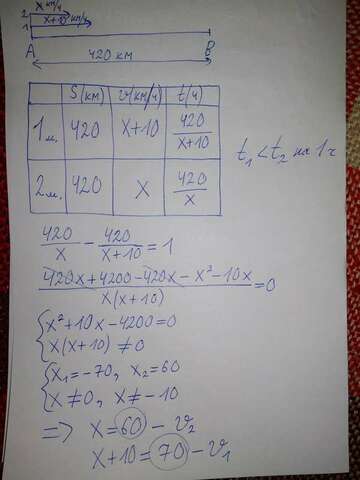 x км/ч
2
x+10 км/ч
1
A B
420 км
S(км) v(км/ч) t(ч)
1м. 420 x+10 420/(x+10)
2м. 420 x 420/x
t₁ < t₂ на 1 ч
420/x - 420/(x+10) = 1
(420x + 4200 - 420x - x² - 10x)/(x(x+10)) = 0
{x² + 10x - 4200 = 0
{x(x+10) ≠ 0
{x₁ = -70, x₂ = 60
{x ≠ 0, x ≠ -10
=> x = 60 - v₂
x + 10 = 70 - v₁